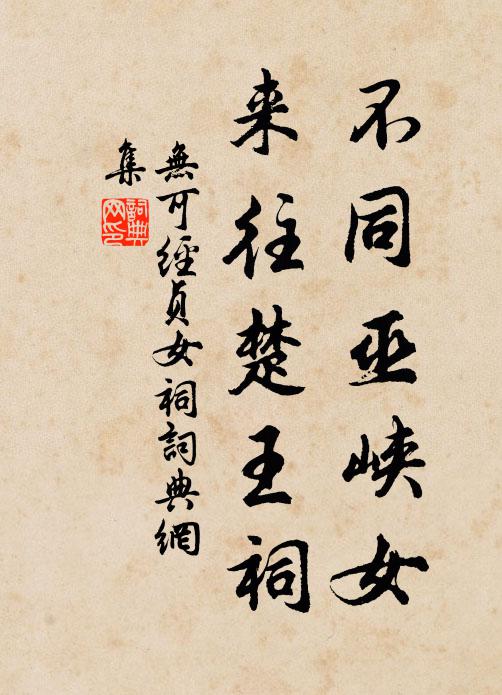 不同巫峽女
来往楚王祠
無可經貞女祠詞典網
集
詞典
网印